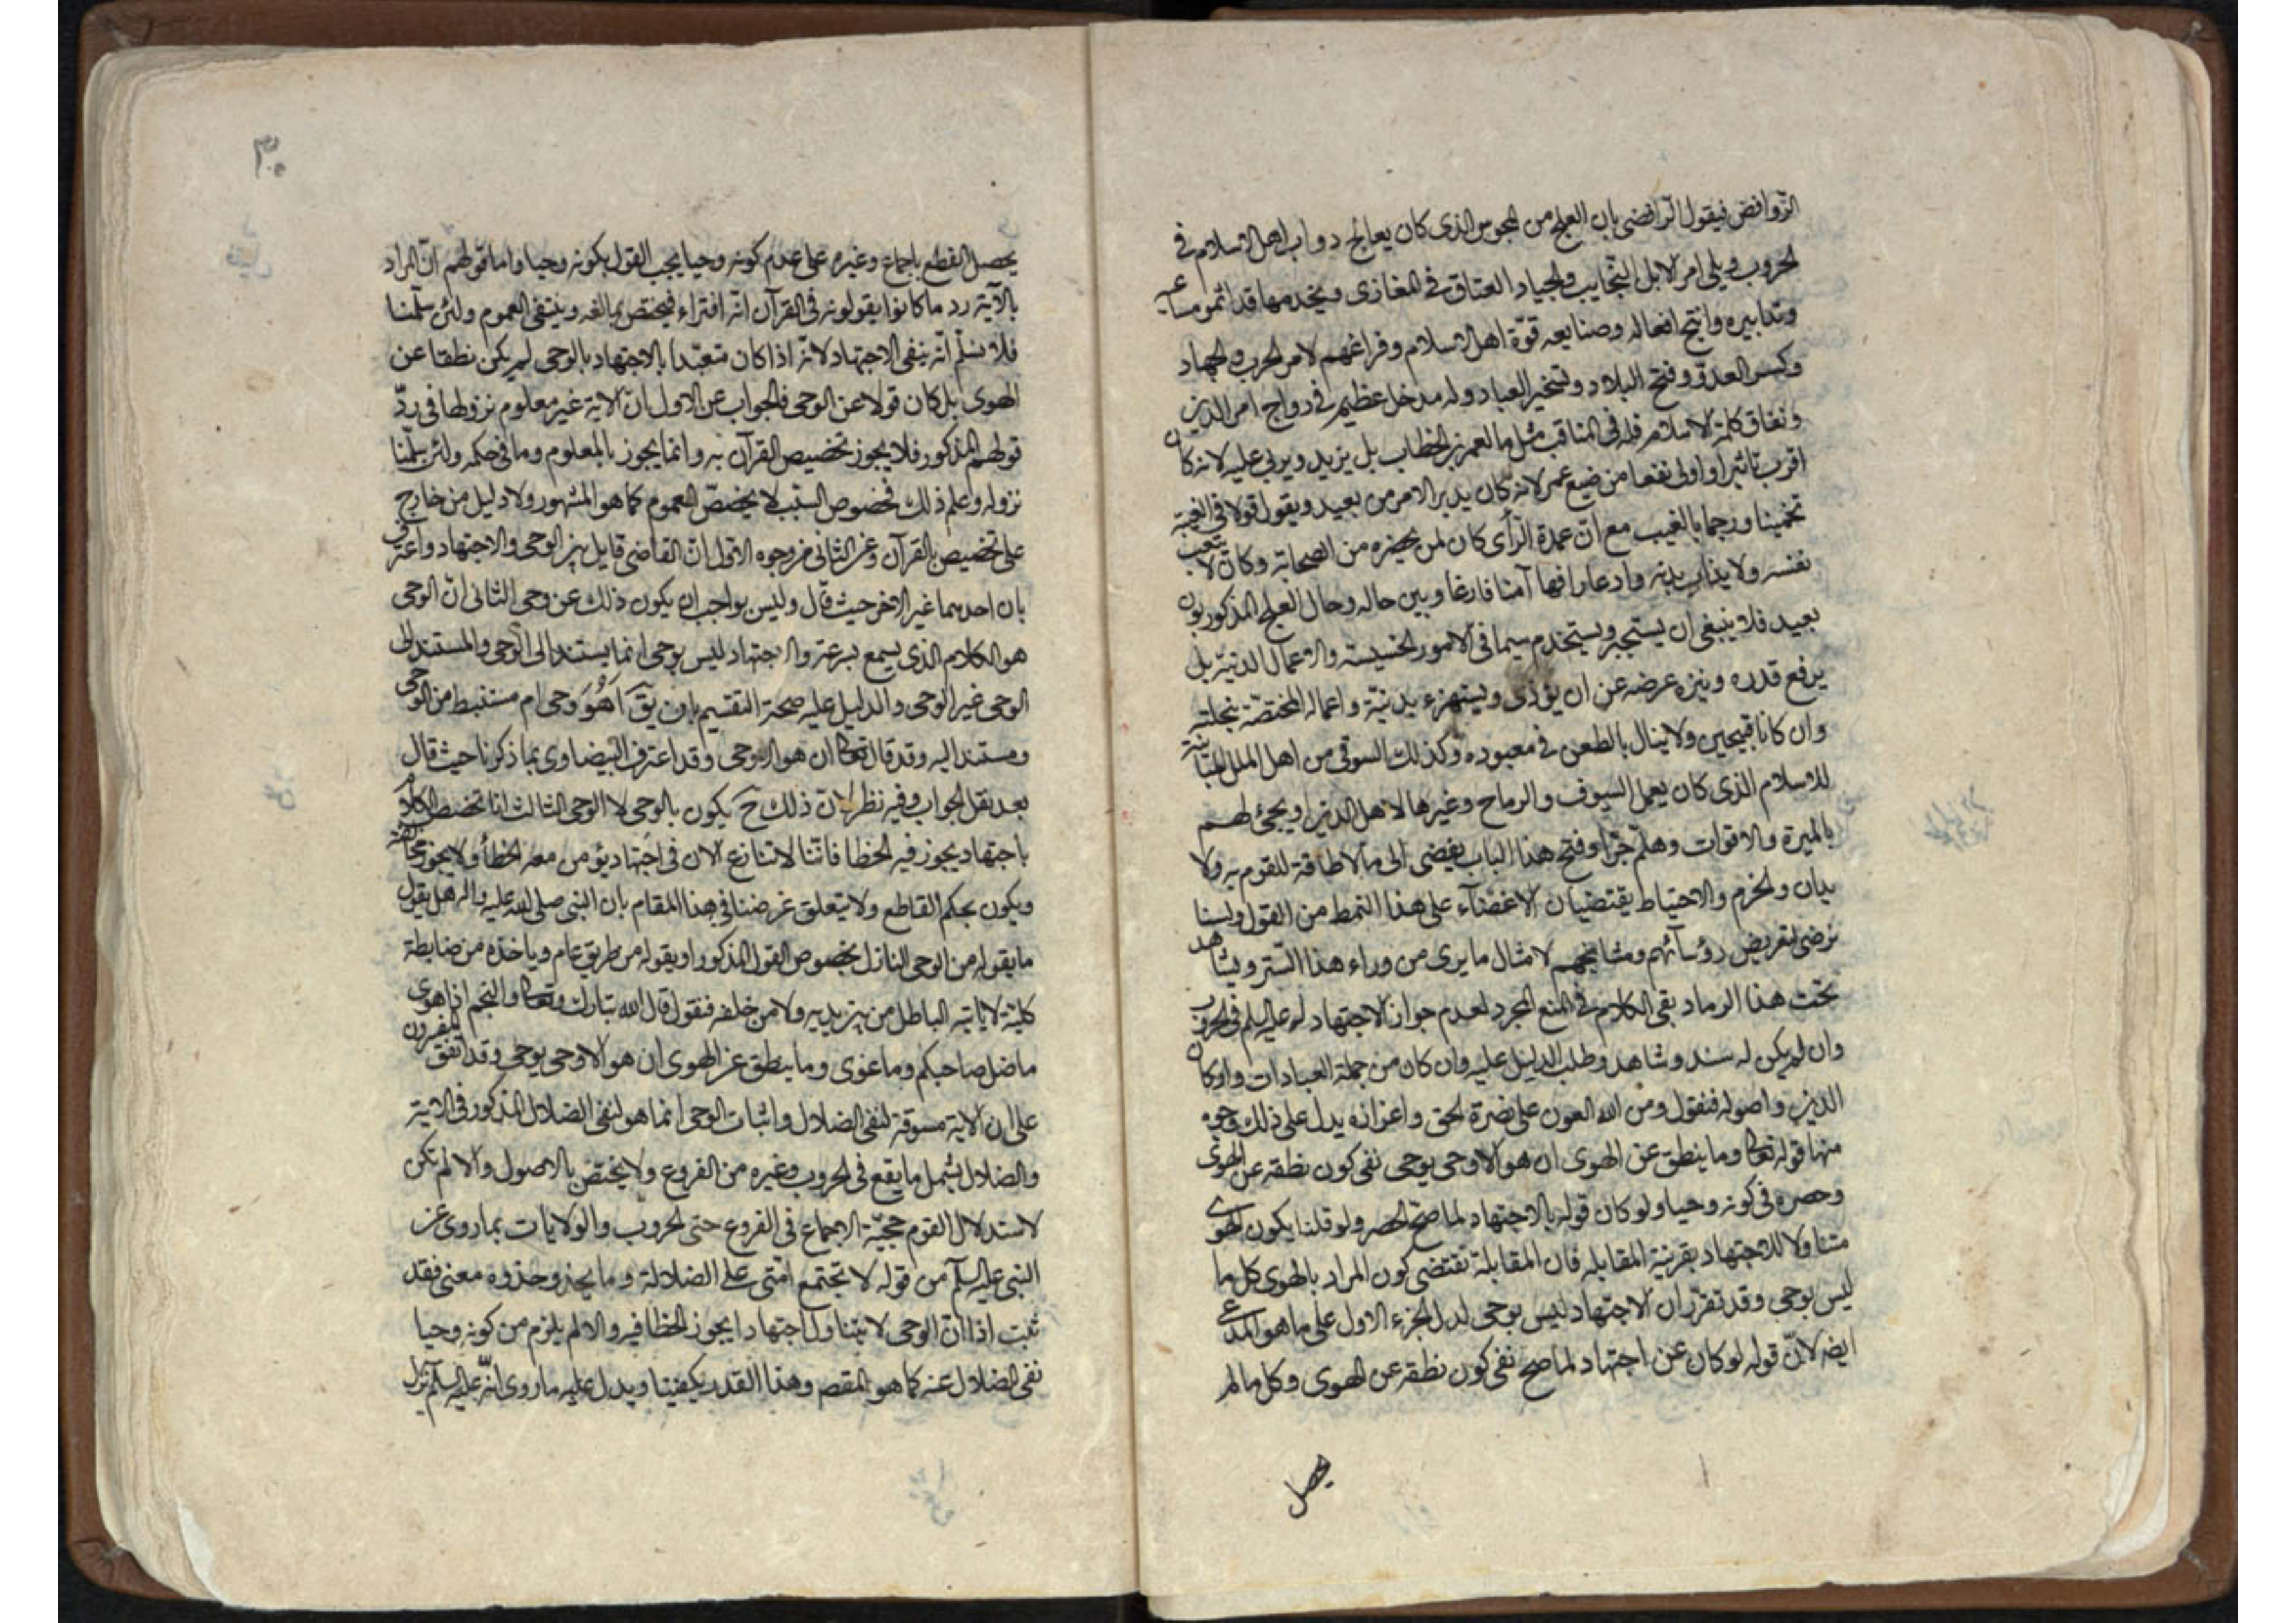 الروافض فيقول الرافضى بان العلج من المجوس الذى كان يعالج دواب اهل الاسلام فى
الحروب ويلى امر الابل النجايب والجياد العتاق فى المغازى ويخدمها قد اثمر مساعيه
وتدابيره وانتج افعاله وصنايعه قوّة اهل الاسلام وفراغهم لامر الحرب والجهاد
وكسر العدوّ وفتح البلاد وتسخير العباد وله مدخل عظيم فى رواج امر الدين
ونفاق كلمة الاسلام فله فى المناقب مثل ما لعمر بن الخطاب بل يزيد ويربى عليه لانه كان
اقرب تاثيرا واولى نفعا من صنيع عمر لانه كان يدبر الامر من بعيد ويقول قولا فى الغيبة
تخمينا ورجما بالغيب مع انّ عمدة الرأى كان لمن يحضره من الصحابة وكان لا يتعب
نفسه ولا يذاب بدنه وادعا رافها آمنا فارغا وبين حاله وحال العلج المذكور بون
بعيد فلا ينبغى ان يستجبر ويستخدم سيما فى الامور الخسيسة والاعمال الدنيّة بل
يرفع قدره وينزه عرضه عن ان يؤذى ويستهزء بدينه واعماله المختصّة بنحلته
وان كانا قبيحين ولا ينال بالطعن فى معبوده وكذلك السوقى من اهل الملل المباينة
للاسلام الذى كان يعمل السيوف والرماح وغيرها لاهل الدين او يجئ لهم
بالميرة والاقوات وهلم جرّا وفتح هذا الباب يفضى الى ما لا طاقة للقوم به ولا
يدان والحزم والاحتياط يقتضيان الاغضآء على هذا النمط من القول ولسنا
نرضى لتعريض رؤسائهم ومشايخهم لامثال ما يرى من وراء هذا الستر ويشاهد
تحت هذا الرماد بقى الكلام فى المنع المجرد لعدم جواز الاجتهاد له عليه السلم فى الحروب
وان لم يكن له سند وشاهد وطلب الدليل عليه وان كان من جملة العبادات واركان
الدين واصوله فنقول ومن الله العون على نصرة الحق واعزازه يدل على ذلك وجوه
منها قوله تعالى وما ينطق عن الهوى ان هو الا وحى يوحى نفى كون نطقه عن الهوى
وحصره فى كونه وحيا ولو كان قوله بالاجتهاد لما صحّ الحصر ولو قلنا يكون الهوى
متناولا للاجتهاد بقرينة المقابله فان المقابلة تقتضى كون المراد بالهوى كل ما
ليس بوحى وقد تقرّر ان الاجتهاد ليس بوحى لدل الجزء الاول على ما هو المدعى
ايضه لانّ قوله لو كان عن اجتهاد لما صح نفى كون نطقه عن الهوى وكل ما لم
يحصل
٣٠
يحصل القطع باجماع وغيره على عدم كونه وحيا يجب القول بكونه وحيا واما قولهم انّ المراد
بالآية رد ما كانوا يقولونه فى القرآن انّه افتراء فيختص بما بلغه وينتفى العموم ولئن سلّمنا
فلا نسلّم انّه ينفى الاجتهاد لانّه اذا كان متعبّدا بالاجتهاد بالوحى لم يكن نطقا عن
الهوى بل كان قولا عن الوحى فالجواب عن الاول انّ الاية غير معلوم نزولها فى ردّ
قولهم المذكور فلا يجوز تخصيص القرآن به وانما يجوز بالمعلوم وما فى حكمه ولئن سلّمنا
نزوله وعلم ذلك فخصوص السّبب لا يخصّص العموم كما هو المشهور ولا دليل من خارج
على تخصيص بالقرآن وعن الثانى من وجوه الاوّل انّ القاضى قايل بين الوحى والاجتهاد واعترف
بان احدهما غير الاخر حيث قال وليس بواجب ان يكون ذلك عن وحى الثانى انّ الوحى
هو الكلام الذى يسمع بسرعة والاجتهاد ليس بوحى انما يستند الى الوحى والمستند الى
الوحى غير الوحى والدليل عليه صحة التقسيم بان يقٓ اَهُوَ وحى ام مستنبط من الوحى
ومستند اليه وقد قال تعالى ان هو الا وحى وقد اعترف البيضاوى بما ذكرنا حيث قال
بعد نقل الجواب وفيه نظر لانّ ذلك حٓ يكون بالوحى لا الوحى الثالث انا نخصص الكلام
باجتهاد يجوز فيه الخطا فانّنا لا نتنازع الان فى اجتهاد يؤمن معه الخطأ ولا يجوز مخالفته
ويكون بحكم القاطع ولا يتعلق غرضنا فى هذا المقام بان النبى صلى الله عليه واله هل يقول
ما يقوله من الوحى النازل بخصوص القول المذكور او يقوله من طريق عام وياخذه من ضابطة
كلية لا ياتيه الباطل من بين يديه ولا من خلفه فنقول قال الله تبارك وتعالى والنجم اذا هوى
ما ضل صاحبكم وما غوى وما ينطق عن الهوى ان هو الا وحى يوحى وقد اتفق المفسرون
على ان الاية مسوقة لنفى الضلال واثبات الوحى انما هو لنفى الضلال المذكور فى الاية
والضلال يشمل ما يقع فى الحروب وغيره من الفروع ولا يختص بالاصول والا لم تكن
لاستدلال القوم حجيّة الاجماع فى الفروع حتى الحروب والولايات بما روى عن
النبى عليه السلم من قوله لا تجتمع امّتى على الضلالة وما يحذو حذوه معنى فقد
ثبت اذا انّ الوحى لا يتناول اجتهادا يجوز الخطا فيه والا لم يلزم من كونه وحيا
نفى الضلال عنه كما هو المقصم وهذا القدر يكفينا ويدل عليه ما روى انّه عليه السلم نزل